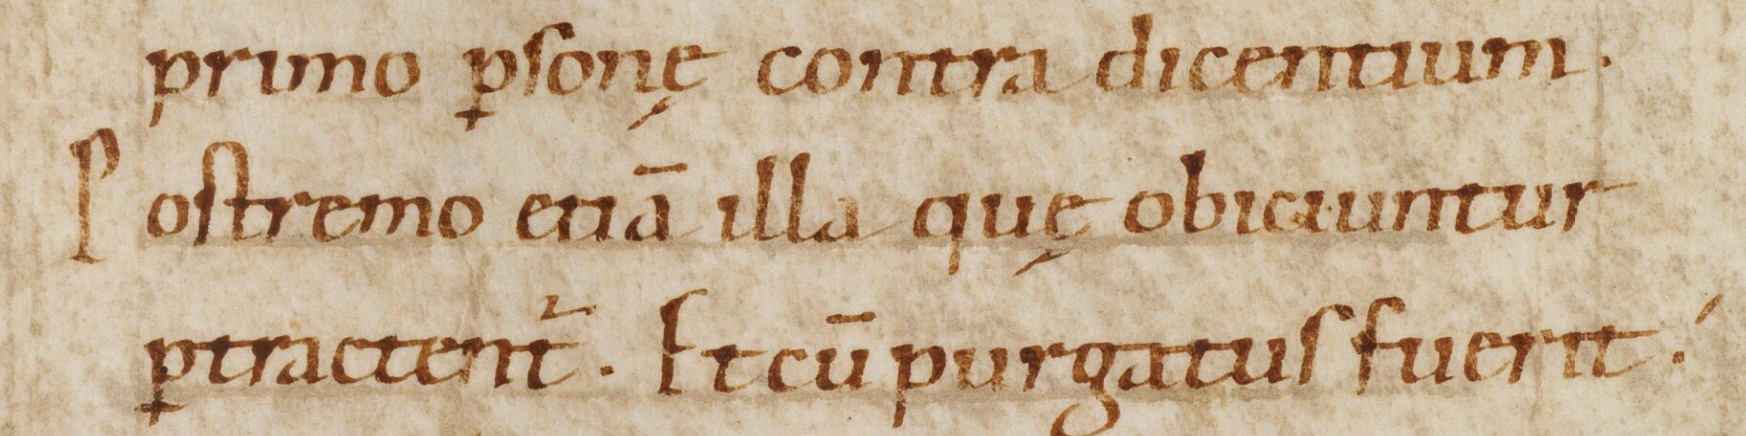 primo ꝑsonę contra dicentium.
Postremo etiā illa quę obiciuntur
ꝑtractent᷑. Et cū purgatus fuerit.